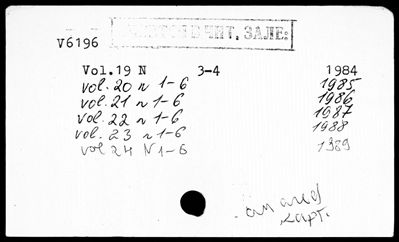 В ЧИТ. ЗАЛЕ:
V6196
Vol.19 N 3-4 1984
vol. 20 n 1-6 1985
vol. 21 n 1-6 1986
vol. 22 n 1-6 1987
vol. 23 n 1-6 1988
vol 24 N 1-6 1989
см след
карт.